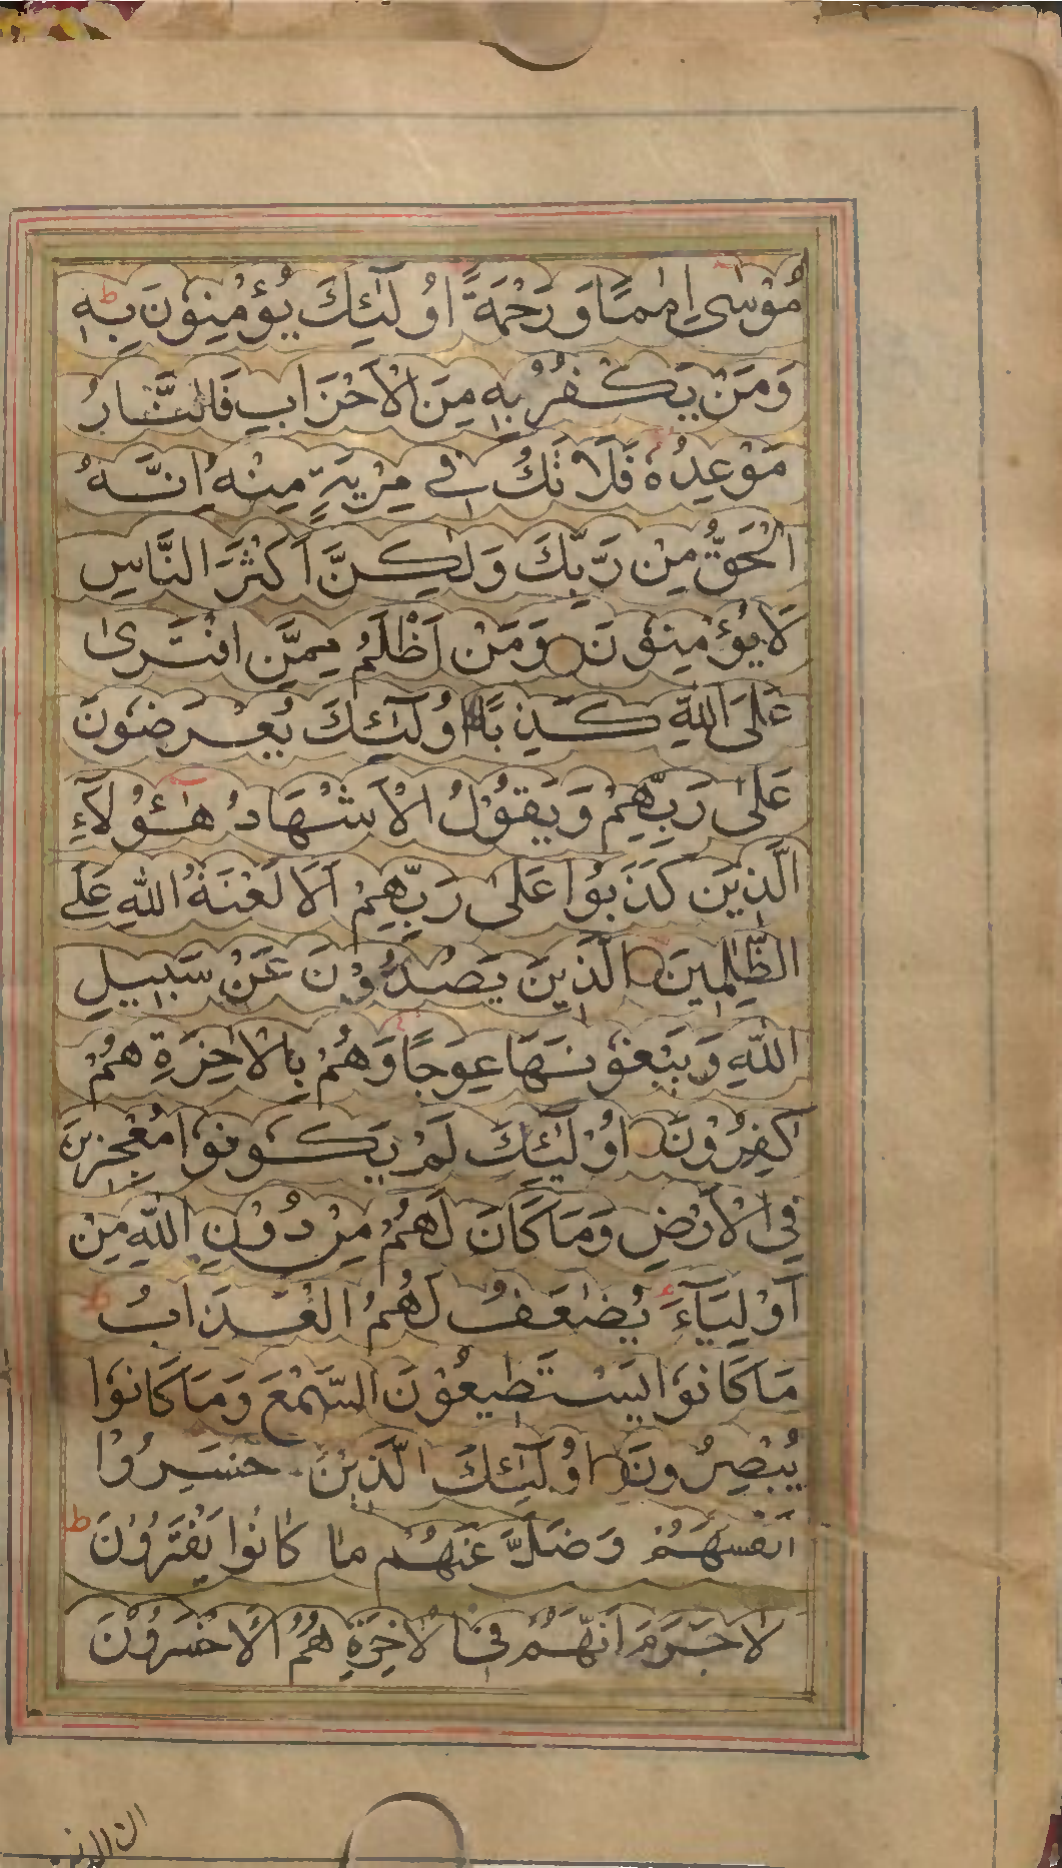 مُوْسٰى اِمٰمًا وَّ رَحْمَةً اُولٰٓئِكَ يُؤْمِنُوْنَ بِهٖ ط
وَمَنْ يَّكْفُرْ بِهٖ مِنَ الْاَحْزَابِ فَالنَّارُ
مَوْعِدُهٗ فَلَا تَكُ فِيْ مِرْيَةٍ مِّنْهُ اِنَّهُ
الْحَقُّ مِنْ رَّبِّكَ وَلٰكِنَّ اَكْثَرَ النَّاسِ
لَا يُؤْمِنُوْنَ وَمَنْ اَظْلَمُ مِمَّنِ افْتَرٰى
عَلَى اللّٰهِ كَذِبًا اُولٰٓئِكَ يُعْرَضُوْنَ
عَلٰى رَبِّهِمْ وَيَقُوْلُ الْاَشْهَادُ هٰٓؤُلَآءِ
الَّذِيْنَ كَذَبُوْا عَلٰى رَبِّهِمْ اَلَا لَعْنَةُ اللّٰهِ عَلَى
الظّٰلِمِيْنَ الَّذِيْنَ يَصُدُّوْنَ عَنْ سَبِيْلِ
اللّٰهِ وَيَبْغُوْنَهَا عِوَجًا وَهُمْ بِالْاٰخِرَةِ هُمْ
كٰفِرُوْنَ اُولٰٓئِكَ لَمْ يَكُوْنُوْا مُعْجِزِيْنَ
فِي الْاَرْضِ وَمَا كَانَ لَهُمْ مِّنْ دُوْنِ اللّٰهِ مِنْ
اَوْلِيَآءَ يُضٰعَفُ لَهُمُ الْعَذَابُ ط
مَا كَانُوْا يَسْتَطِيْعُوْنَ السَّمْعَ وَمَا كَانُوْا
يُبْصِرُوْنَ اُولٰٓئِكَ الَّذِيْنَ خَسِرُوْا
اَنْفُسَهُمْ وَضَلَّ عَنْهُمْ مَا كَانُوْا يَفْتَرُوْنَ ط
لَا جَرَمَ اَنَّهُمْ فِي الْاٰخِرَةِ هُمُ الْاَخْسَرُوْنَ
ان الذين